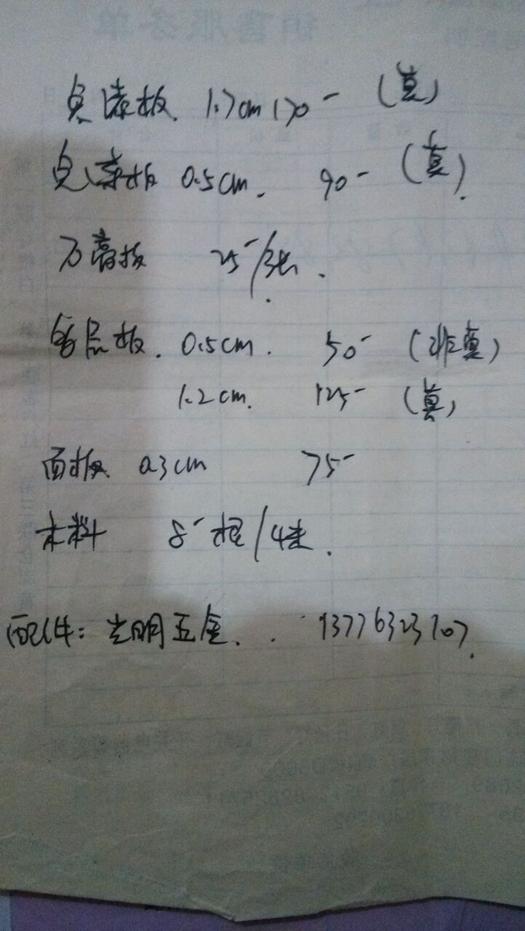 免漆板. 1.7cm 170- (真)
免漆板 0.5cm. 90- (真).
万高板 25-/张.
多层板. 0.5cm. 50- (非真)
1.2cm. 125- (真)
面板 0.3cm 75-
木料 8-根/4米.
配件: 光明五金. . 13776323707.
销售服务单